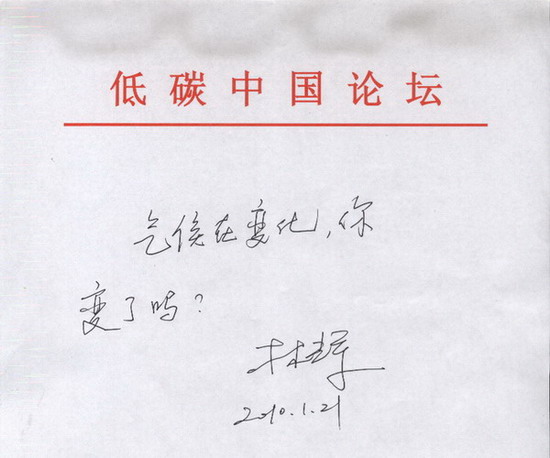 低碳中国论坛
气候在变化,你
变了吗?
2010.1.21